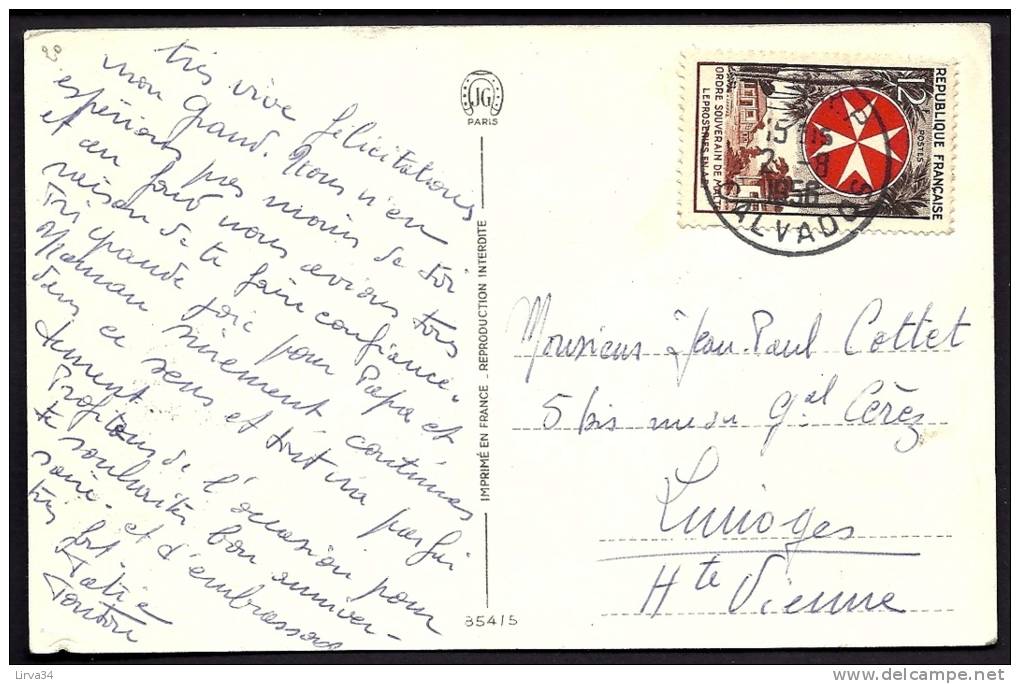 très vive félicitations
mon grand. Nous n'en
espérions pas moins de toi
et au fond nous avions très
raison de te faire confiance.
Très grande joie pour Papa et
Maman sûrement continues
dans ce sens et tout ira parfai
tement.
Profitons de l'occasion pour
te souhaiter bon anniver-
saire. et t'embrassons
très fort
Tatie
Tonton
JG
PARIS
IMPRIMÉ EN FRANCE _ REPRODUCTION INTERDITE
854/5
REPUBLIQUE FRANÇAISE
12F
POSTES
ORDRE SOUVERAIN DE MALTE
LEPROSERIES EN
15H15
2 -8
1956
CALVADOS
Monsieur Jean-Paul Cottet
5 bis rue du Gal Cérez
Limoges
Hte Vienne
Lirva34
delcampe.net